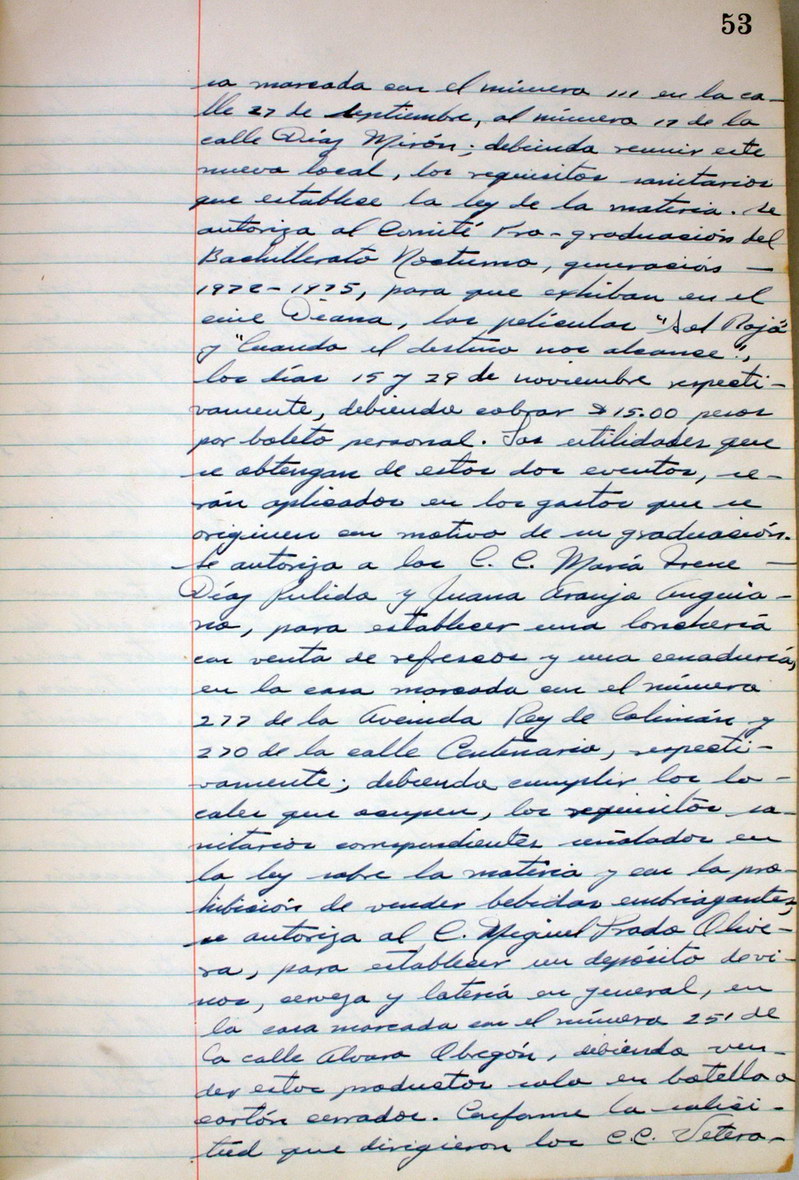 53
sa marcada con el número 111 en la ca-
lle 27 de septiembre, al número 17 de la
calle Díaz Mirón; debiendo reunir este
nuevo local, los requisitos sanitarios
que establece la ley de la materia. Se
autoriza al Comité Pro-graduación del
Bachillerato Nocturno, generación —
1972-1975, para que exhiban en el
cine Diana, las películas "Sol Rojo"
y "Cuando el destino nos alcance",
los días 15 y 29 de noviembre respecti-
vamente, debiendo cobrar $15.00 pesos
por boleto personal. Las utilidades que
se obtengan de estos dos eventos, se-
rán aplicados en los gastos que se
originen con motivo de su graduación.
Se autoriza a las C. C. María Irene —
Díaz Pulido y Juana Araujo Anguia-
no, para establecer una lonchería
con venta de refrescos y una cenaduría,
en la casa marcada con el número
277 de la Avenida Rey de Colimán y
270 de la calle Centenario, respecti-
vamente; debiendo cumplir los lo-
cales que ocupen, los requisitos sa-
nitarios correspondientes señalados en
la ley sobre la materia y con la pro-
hibición de vender bebidas embriagantes,
se autoriza al C. Miguel Prado Olive-
ra, para establecer un depósito de vi-
nos, cerveza y latería en general, en
la casa marcada con el número 251 de
la calle Alvaro Obregón, debiendo ven-
der estos productos solo en botella o
cartón cerrados. Conforme la solici-
tud que dirigieron los C.C. Vetera-